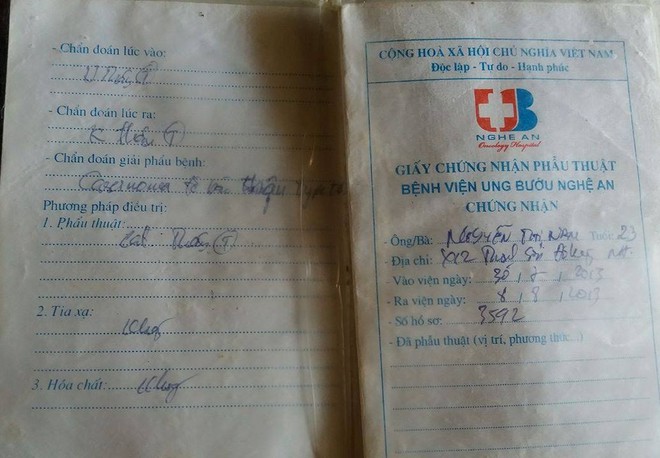 - Chẩn đoán lúc vào:
U
- Chẩn đoán lúc ra:
K thận (T)
- Chẩn đoán giải phẫu bệnh:
Carcinoma tế bào thận
Phương pháp điều trị:
1. Phẫu thuật: Cắt thận (T)
2. Tia xạ:
Không
3. Hóa chất: Không
CỘNG HOÀ XÃ HỘI CHỦ NGHĨA VIỆT NAM
Độc lập - Tự do - Hạnh phúc
B
NGHE AN
Oncology Hospital
GIẤY CHỨNG NHẬN PHẪU THUẬT
BỆNH VIỆN UNG BƯỚU NGHỆ AN
CHỨNG NHẬN
- Ông/Bà: NGUYỄN THỊ NAM Tuổi: 23
- Địa chỉ:
- Vào viện ngày: 30, 7, 2013
- Ra viện ngày: 8, 8, 2013
- Số hồ sơ: 3592
- Đã phẫu thuật (vị trí, phương thức...)